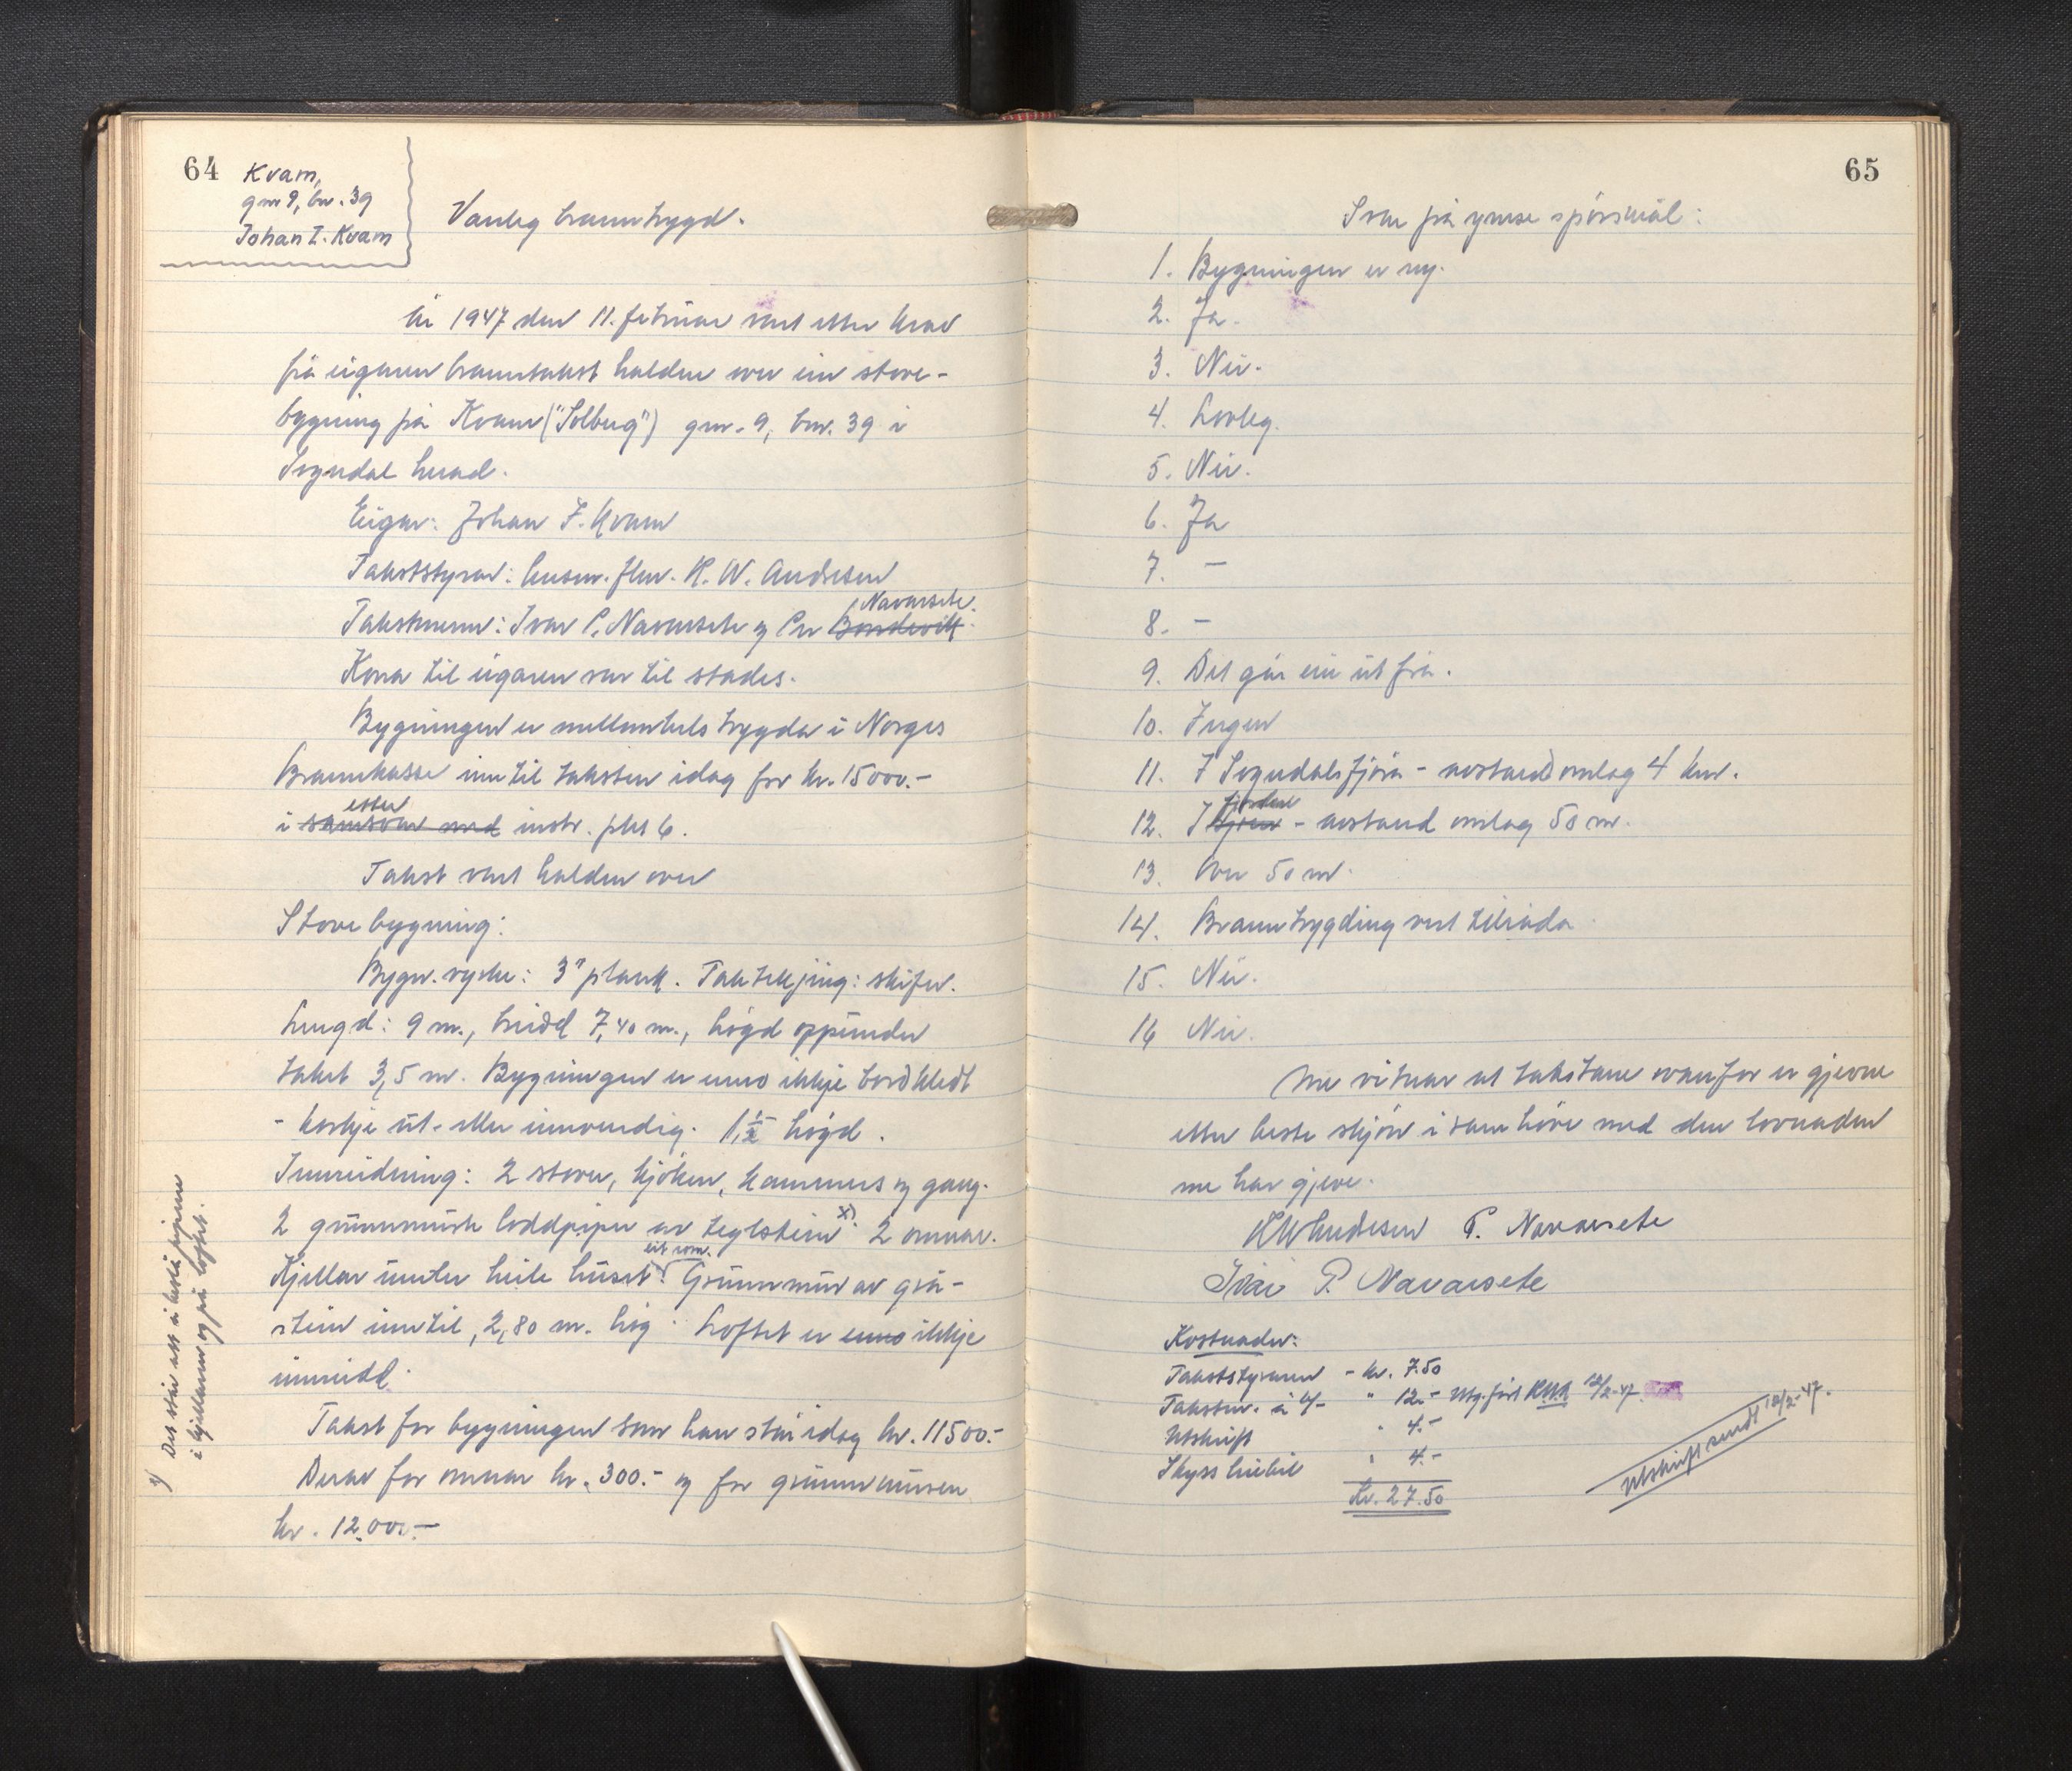 64
Kvam,
gnr 9, bnr. 39
Johan I. Kvam
Vanleg branntrygd.
År 1947 den 11. februar vart etter krav
frå eigaren branntakst halden over ein stove-
bygning på Kvam ("Solberg") gnr. 9, bnr. 39 i
Sogndal herad.
Eigar: Johan I. Kvam
Takststyrar: lensm. flm. K. W. Andresen
Navarsete.
Takstmenn: Ivar P. Navarsete og Per Bondevik
Kona til eigaren var til stades.
Bygningen er mellombels trygda i Norges
Brannkasse inntil taksten idag for kr. 15000.-
etter
i samsvar med instr. pkt 6.
Takst vart halden over
Stovebygning:
Bygn. vyrke: 3" plank. Taktekjing: skifer.
Lengd: 9 m., breidd 7,40 m., høgd oppunder
taket 3,5 m. Bygningen er enno ikkje bordkledt
- korkje ut- eller innvendig. 1 1/2 høgd.
Innreidning: 2 stover, kjøken, kammers og gang.
2 grunnmurte loddpiper av teglstein x). 2 omnar.
eit rom.
Kjellar under heile huset. Grunnmur av grå-
stein inntil 2,80 m. høg. Loftet er enno ikkje
innreidd.
Takst for bygningen som han står idag kr. 11500.-
Derav for omnar kr. 300.- og for grunnmuren
kr. 12.000.-
x) Det står att å kosta pipene
i kjellaren og på loftet.
65
Svar på ymse spørsmål:
1. Bygningen er ny.
2. Ja.
3. Nei.
4. Lovleg.
5. Nei.
6. Ja
7. -
8. -
9. Det går ein ut frå.
10. Ingen
11. I Sogndalsfjøra - avstand omlag 4 km.
fjorden
12. I - avstand omlag 50 m.
13. Over 50 m.
14. Branntrygding vert tilråda.
15. Nei.
16 Nei.
Me vitnar at takstane ovanfor er gjevne
etter beste skjøn i samhøve med den lovnaden
me har gjeve.
KWAndresen P. Navarsete
Ivar P. Navarsete
Kostnader:
Takststyraren - kr. 7.50
Takstm. à 4/- " 12.- Utg.ført KWA 12/2-47
Utskrift " 4.-
Skyss " 4.-
Kr. 27.50
Utskrift sendt 12/2-47.